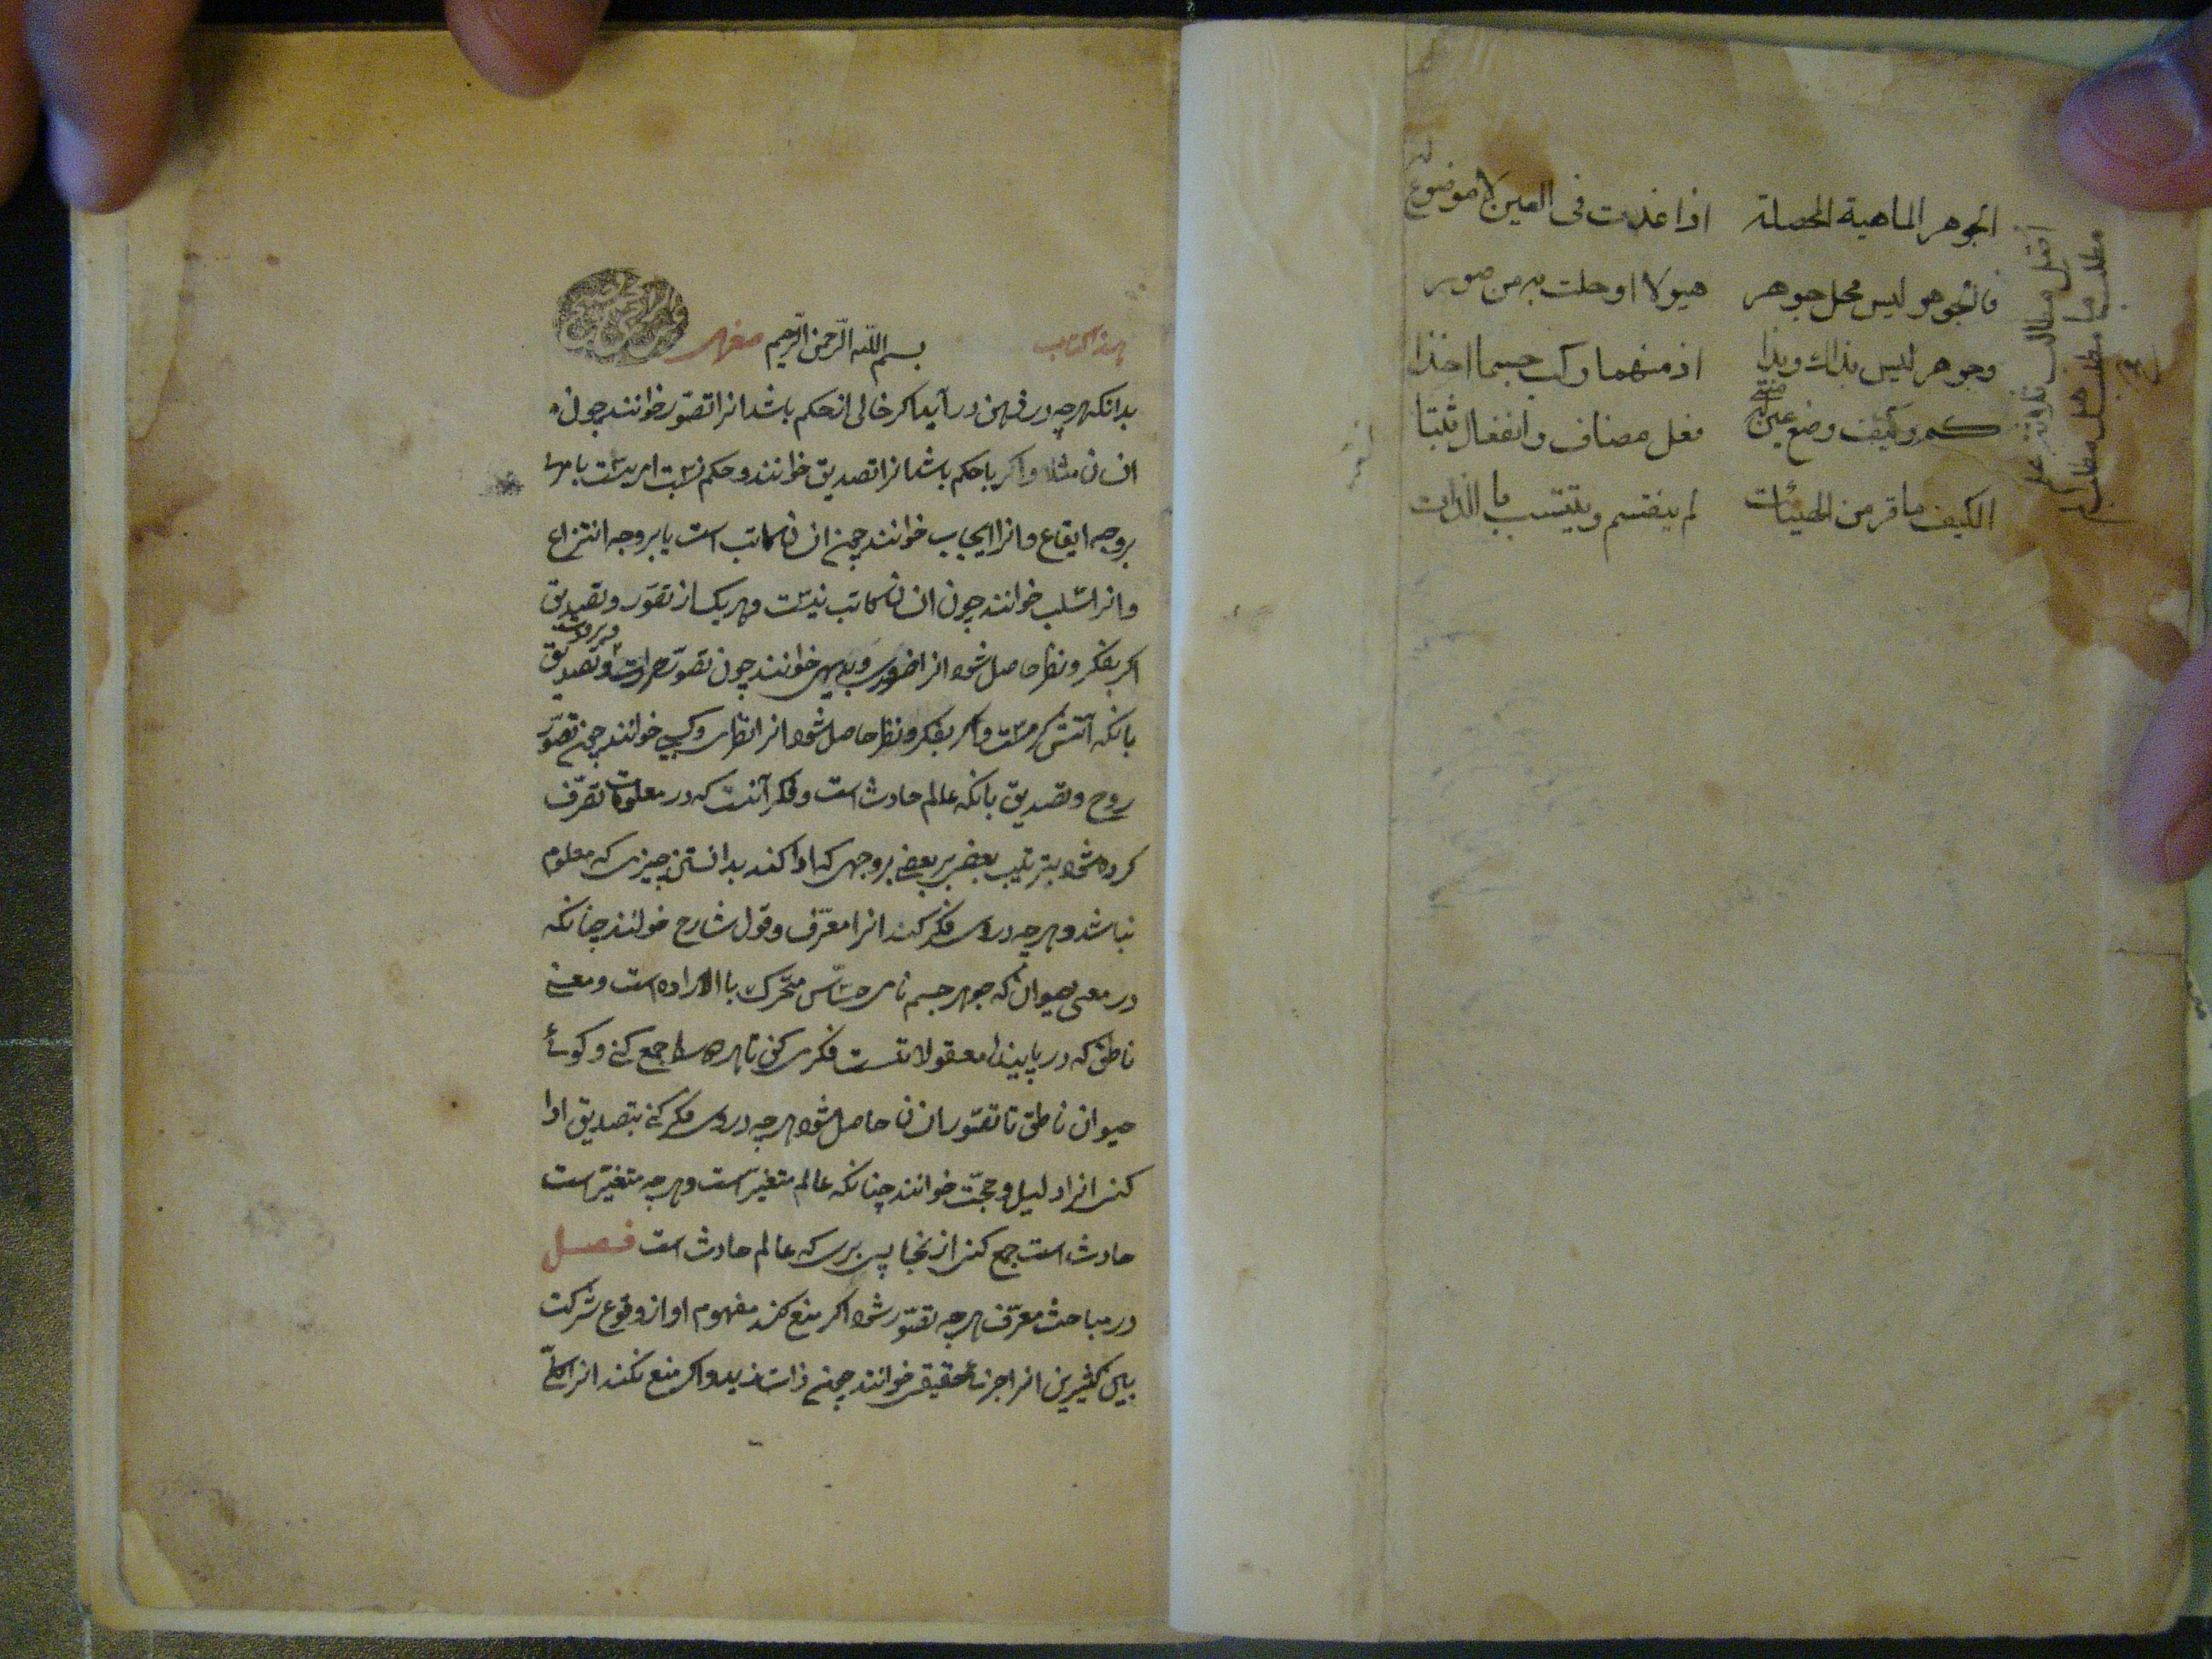 الجوهر الماهية المحصلة اذا غدت فى العين لا موضوع له
فالجوهر ليس محل جوهر هيولا او حلت به من صور
وجوهر ليس بذاك وبذا اذ منهما ركب جسما اخذا
كم وكيف وضع عين متى فعل مضاف وانفعال ثبتا
الكيف ما قر من الهيئات لم ينقسم وينتسب بالذات
مطلب ما مطلب هل مطلب
هذا الكتاب
بسم الله الرحمن الرحيم
بدانكه هرچه در ذهن درآيد اكر خالى از حكم باشد انرا تصوّر خوانند چون
انسان مثلا واكر با حكم باشد انرا تصديق خوانند وحكم نسبت امريست بامرى
بروجه ايقاع وانرا ايجاب خوانند چون انسان كاتب است يا بروجه انتزاع
وانرا سلب خوانند چون انسان كاتب نيست وهريك از تصوّر وتصديق
اكر بفكر ونظر حاصل شود انرا ضرورى وبديهى خوانند چون تصوّر حرارت وبرودت وتصديق
بانكه آتش كرمست واكر بفكر ونظر حاصل شود انرا نظرى وكسبى خوانند چون تصوّر
روح وتصديق بانكه عالم حادث است وفكر آنست كه در معلومات تصرّف
كرده شود بترتيب بعضى بر بعضى بروجهى كه ادا كند بدانستن چيزى كه معلوم
نباشد وهرچه دروى فكر كنند انرا معرّف وقول شارح خوانند چنانكه
در معنى حيوان كه جوهر جسم نامى حسّاس متحرّك باالاراده است ومعنى
ناطق كه دريابنده معقولاتست فكر مى كنى تا هر دو را جمع كنى وكوئى
حيوان ناطق تا تصوّر انسان حاصل شود هرچه دروى فكر كنى بتصديق ادا
كند انرا دليل وحجّت خوانند چنانكه عالم متغيّر است وهرچه متغيّر است
حادث است جمع كنى از اينجا پى برى كه عالم حادث است فصل
در مباحث معرّف هرچه تصوّر شود اكر منع كند مفهوم او از وقوع شركت
بين كثيرين انرا جزئى حقيقى خوانند چون ذات زيد واكر منع نكند انرا كلّى